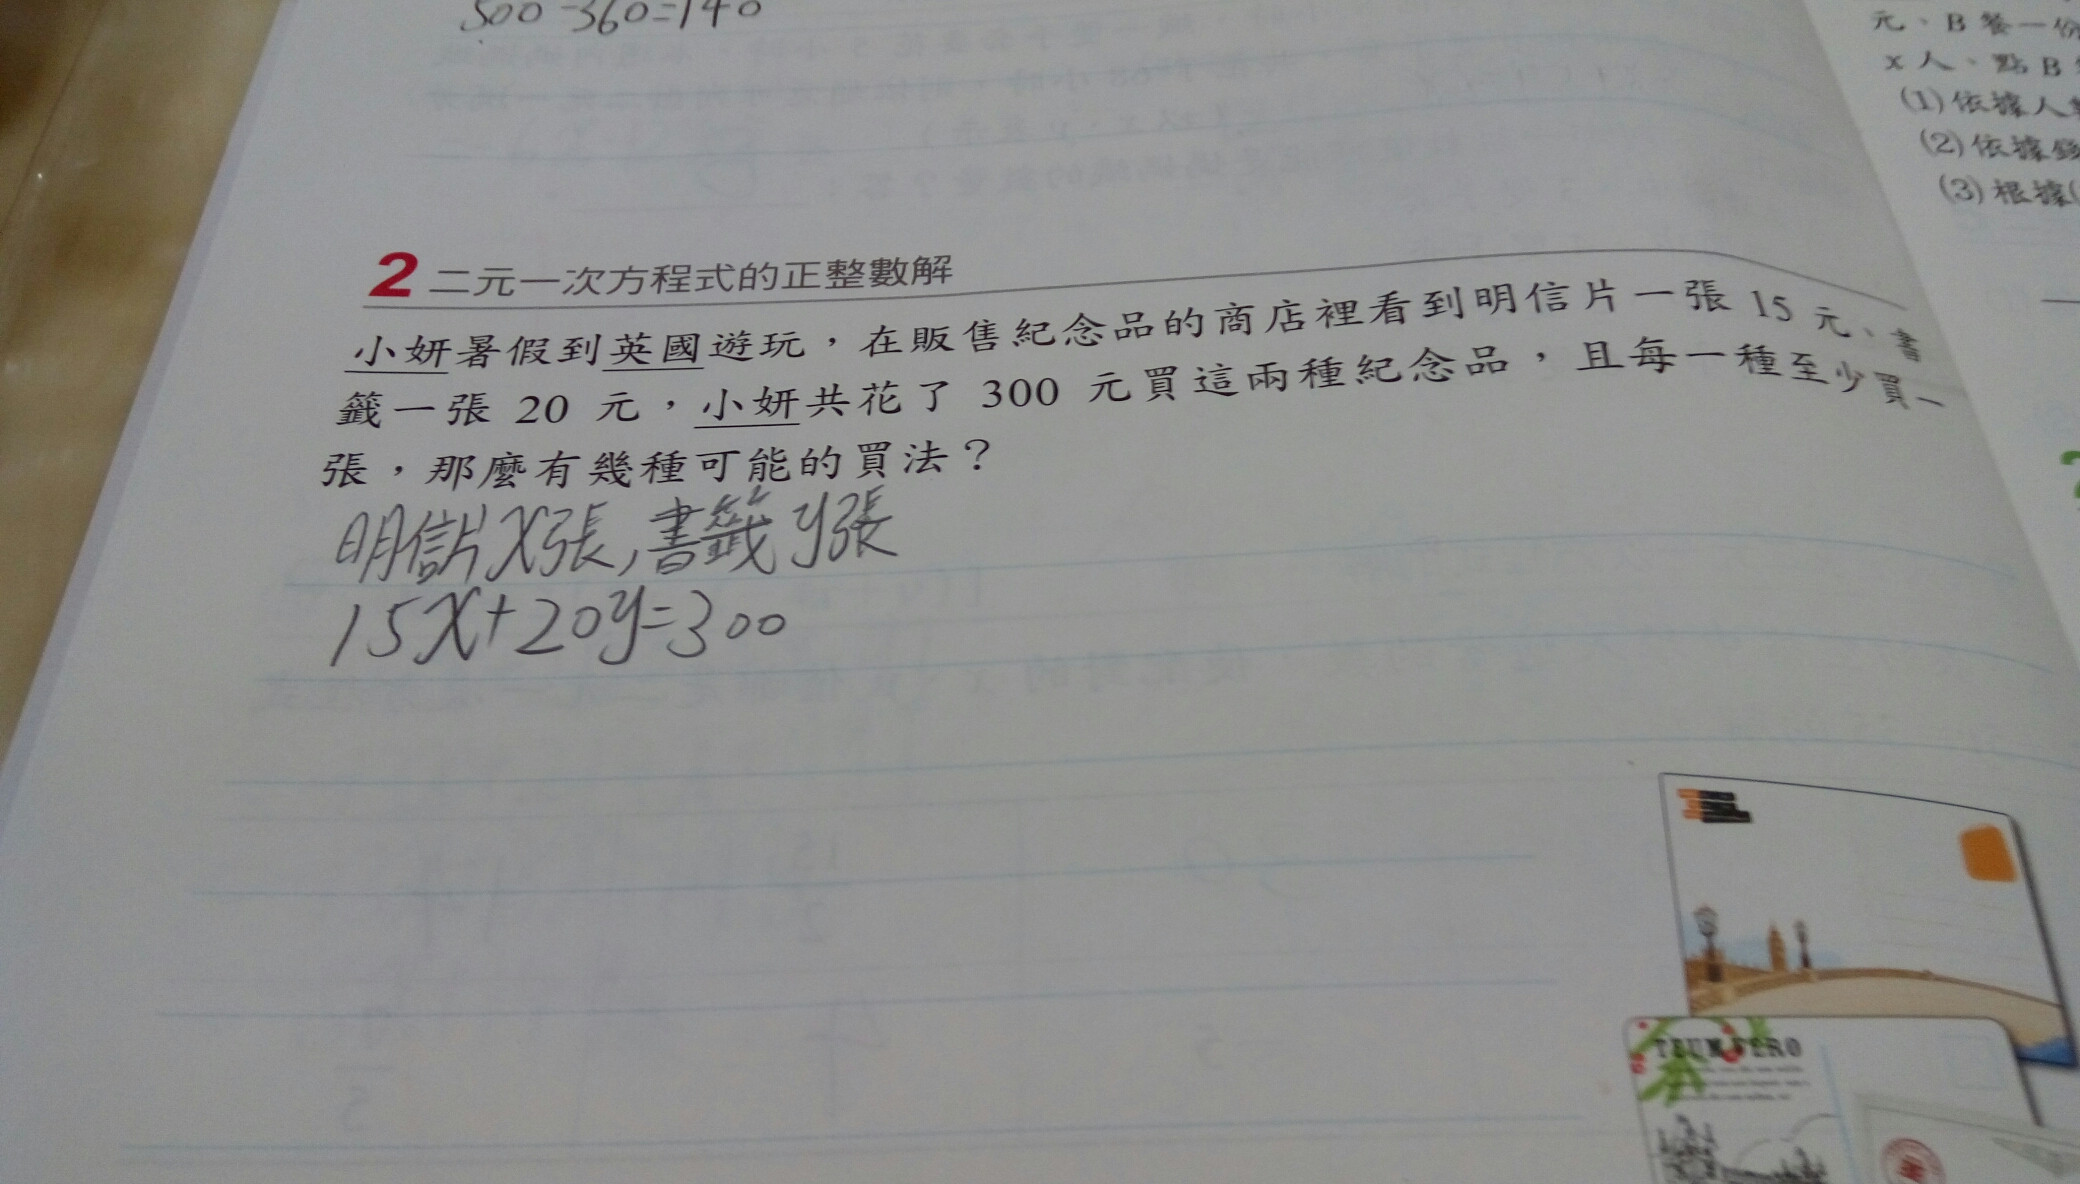 500-360=140
元、B餐一份
x人、點B
(1)依據人數
(2)依據錢
(3)根據(
2 二元一次方程式的正整數解
小妍暑假到英國遊玩，在販售紀念品的商店裡看到明信片一張 15 元、書
籤一張 20 元，小妍共花了 300 元買這兩種紀念品，且每一種至少買一
張，那麼有幾種可能的買法？
明信片X張,書籤y張
15X+20y=300